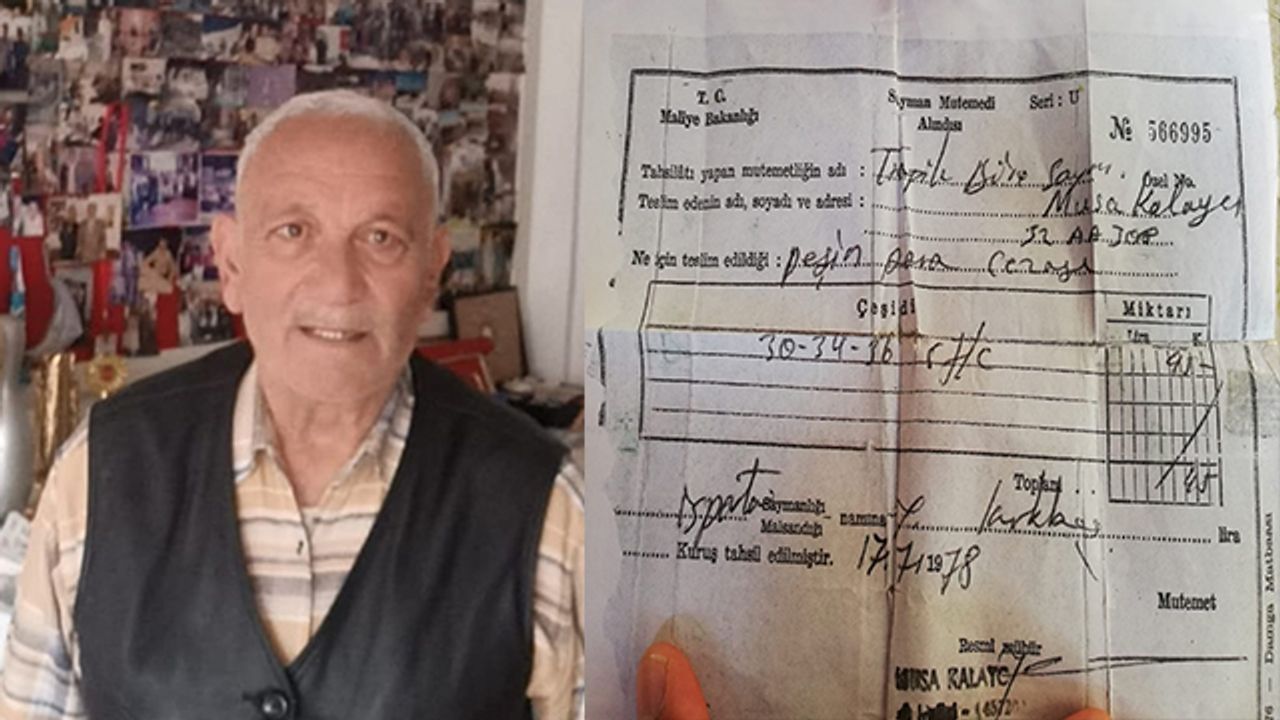 T. C.
Maliye Bakanlığı
Sayman Mutemedi
Alındısı
Seri : U
№ 566995
Tahsilâtı yapan mutemetliğin adı : Trafik Büro
Özel No.
Teslim edenin adı, soyadı ve adresi : Musa Kalaycı
32 AA 308
Ne için teslim edildiği : peşin para cezası
Çeşidi
Miktarı
Lira K.
30-34-36
Toplam . .
Isparta Saymanlığı
Malsandığı
namına
lira
Kuruş tahsil edilmiştir. 17.7.1978
Mutemet
Resmî mühür
MUSA KALAYC
6 — Damga Matbaası